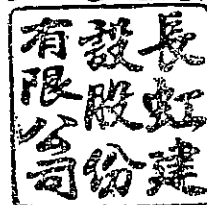 長虹建
設股份
有限公司